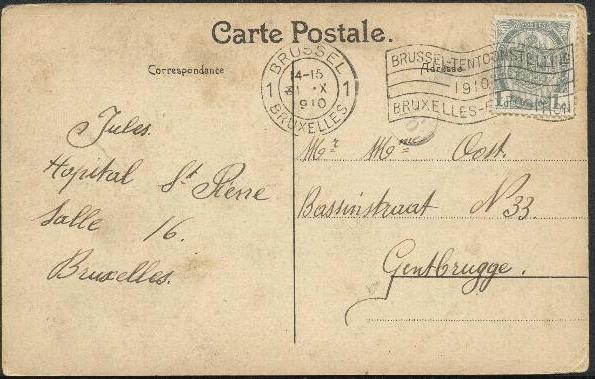 Carte Postale.
Correspondance
Adresse
BRUSSEL
14-15
31 X
1 1
1910
BRUXELLES
BRUSSEL-TENTOONSTELLING
1910
BRUXELLES-
Jules.
Hopital St Pierre
Salle 16.
Bruxelles.
Mr Mme Oost.
Bassinstraat N 33.
Gentbrugge.